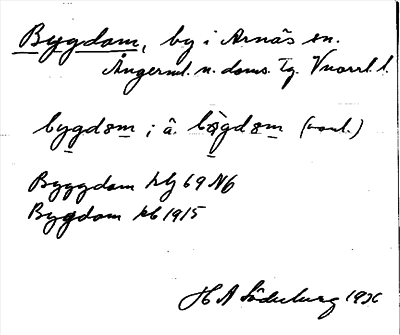 Bygdom, by i Arnäs sn.
Ångerml. n. doms. tg. Vnorrl. l.
bygdom i â. bògdom (vanl.)
Byggdom kb 69 Nb
Bygdom kb 1915
H A Söderburg